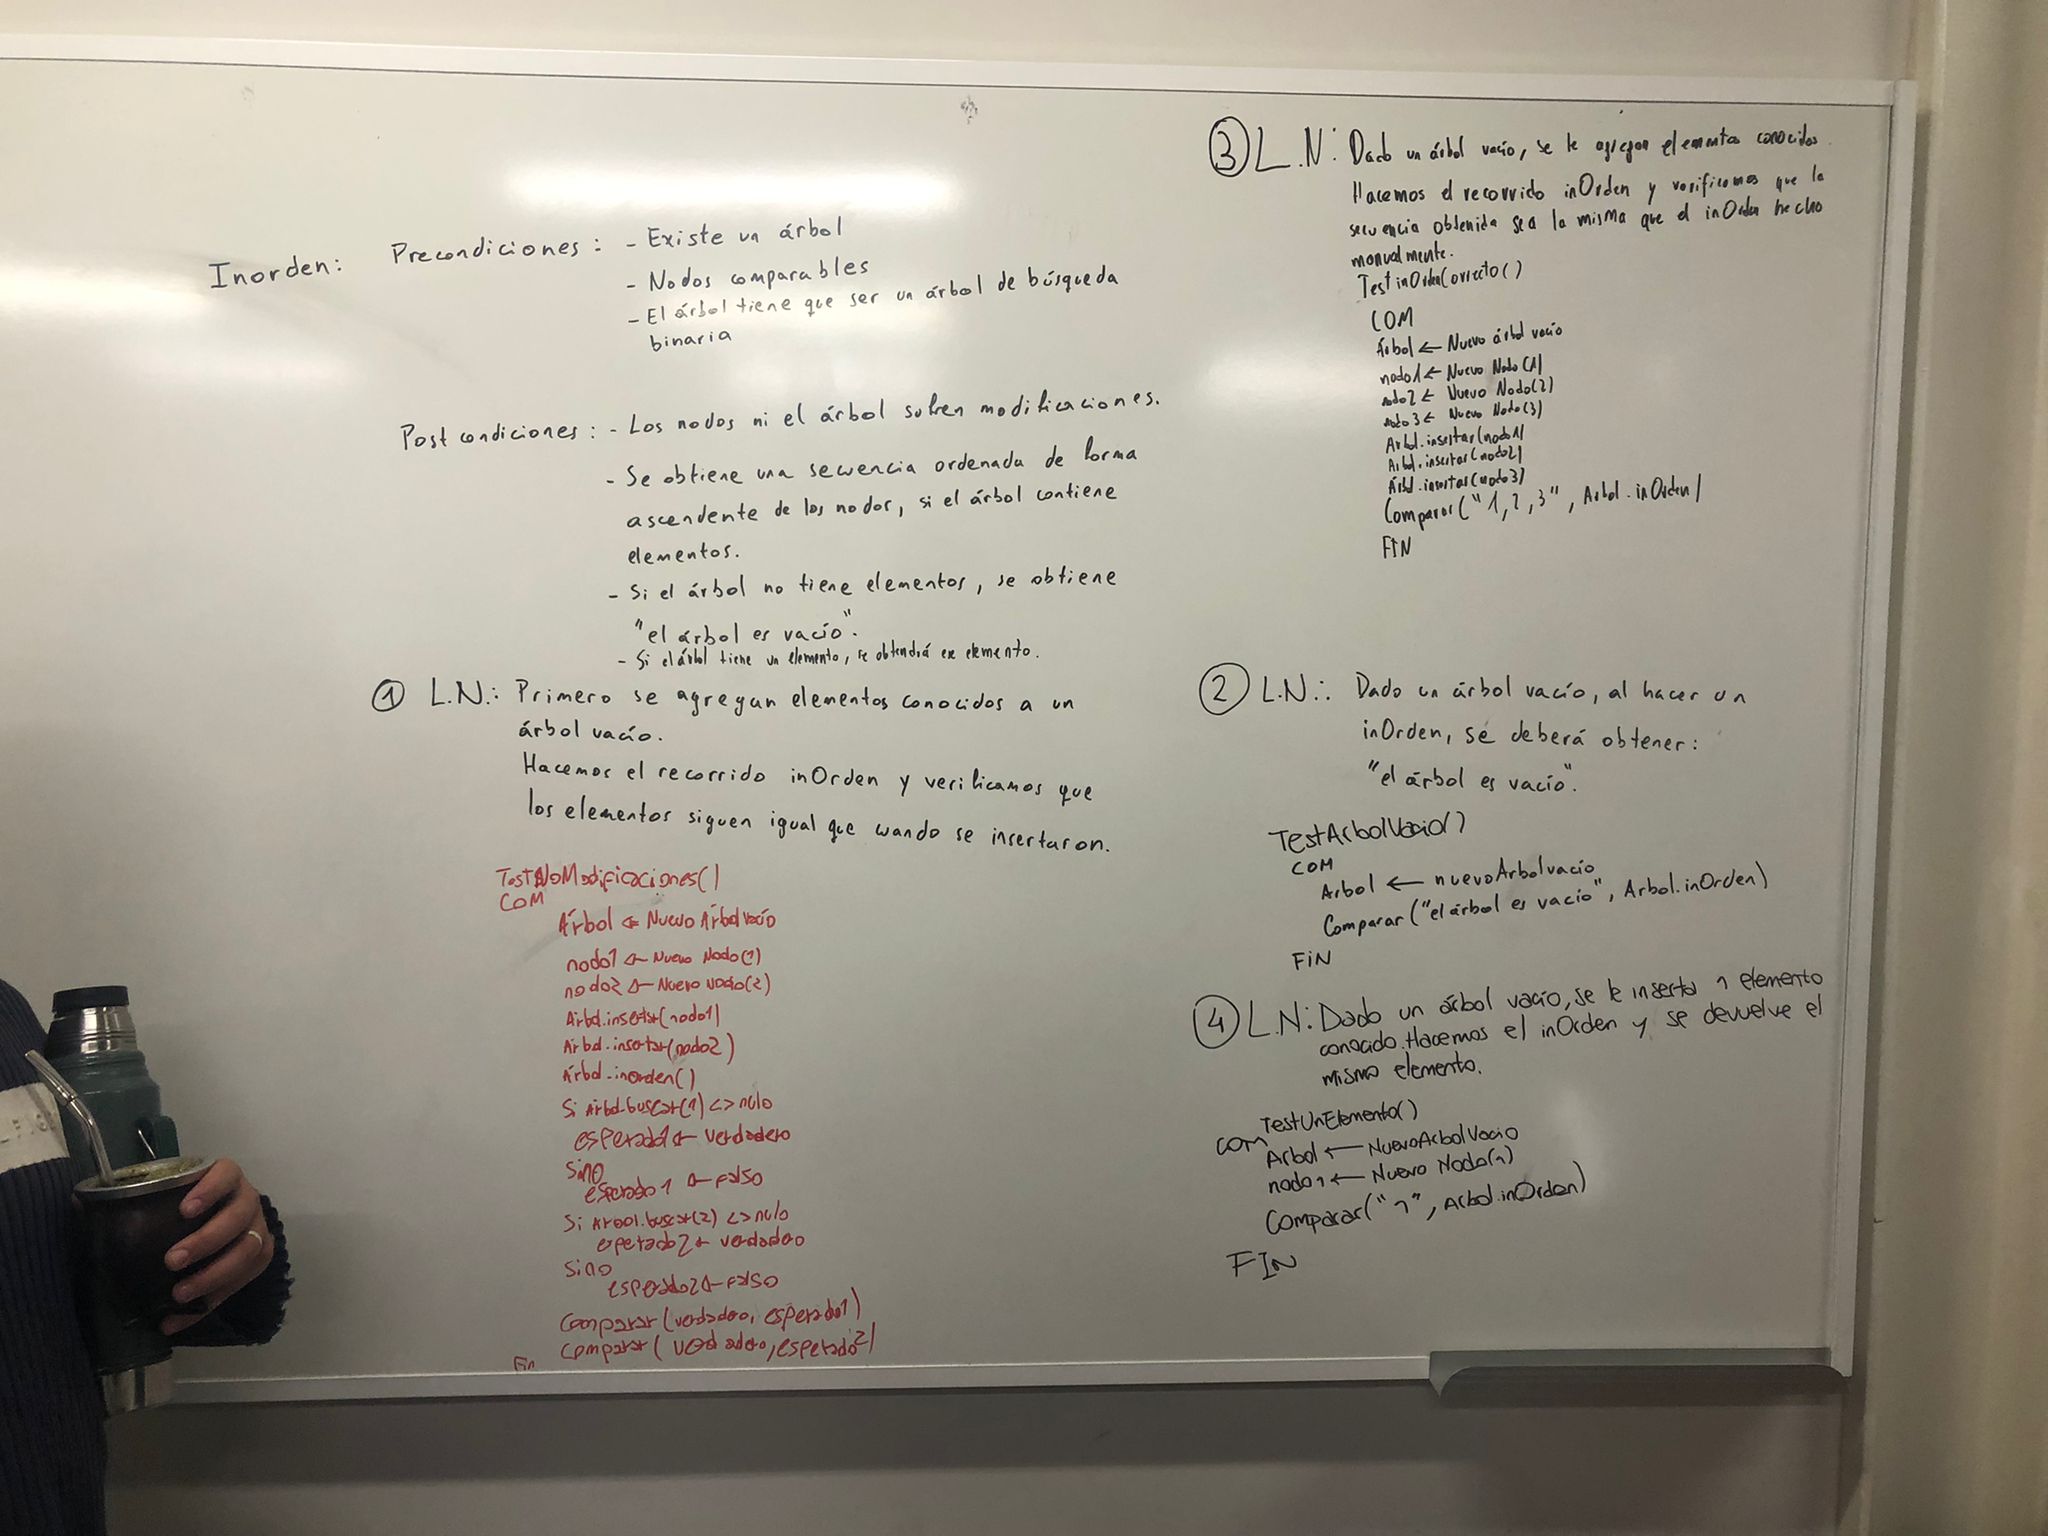 Inorden: Precondiciones: - Existe un árbol
- Nodos comparables
- El árbol tiene que ser un árbol de búsqueda
binaria
Postcondiciones: - Los nodos ni el árbol sufren modificaciones.
- Se obtiene una secuencia ordenada de forma
ascendente de los nodos, si el árbol contiene
elementos.
- Si el árbol no tiene elementos, se obtiene
"el árbol es vacío".
- Si el árbol tiene un elemento, se obtendrá ese elemento.
① L.N.: Primero se agregan elementos conocidos a un
árbol vacío.
Hacemos el recorrido inOrden y verificamos que
los elementos siguen igual que cuando se insertaron.
TestNoModificaciones()
COM
Árbol ← Nuevo ÁrbolVacío
nodo1 ← Nuevo Nodo(1)
nodo2 ← Nuevo Nodo(2)
Árbol.insertar(nodo1)
Árbol.insertar(nodo2)
Árbol.inorden()
Si Árbol.buscar(1) <> nulo
esperado1 ← verdadero
Sino
esperado1 ← falso
Si Árbol.buscar(2) <> nulo
esperado2 ← verdadero
Sino
esperado2 ← falso
Comparar (verdadero, esperado1)
Comparar (verdadero, esperado2)
Fin
③ L.N: Dado un árbol vacío, se le agregan elementos conocidos.
Hacemos el recorrido inOrden y verificamos que la
secuencia obtenida sea la misma que el inOrden hecho
manualmente.
TestinOrdenCorrecto()
COM
Árbol ← Nuevo árbol vacío
nodo1 ← Nuevo Nodo(1)
nodo2 ← Nuevo Nodo(2)
nodo3 ← Nuevo Nodo(3)
Árbol.insertar(nodo1)
Árbol.insertar(nodo2)
Árbol.insertar(nodo3)
Comparar("1,2,3", Arbol.inOrden)
FIN
② L.N.: Dado un árbol vacío, al hacer un
inOrden, se deberá obtener:
"el árbol es vacío".
TestArbolVacio()
COM
Arbol ← nuevoArbolvacío
Comparar("el árbol es vacío", Arbol.inOrden)
FIN
④ L.N: Dado un árbol vacío, se le inserta 1 elemento
conocido. Hacemos el inOrden y se devuelve el
mismo elemento.
TestUnElemento()
COM
Arbol ← NuevoArbolVacio
nodo1 ← Nuevo Nodo(1)
Comparar("1", Arbol.inOrden)
FIN